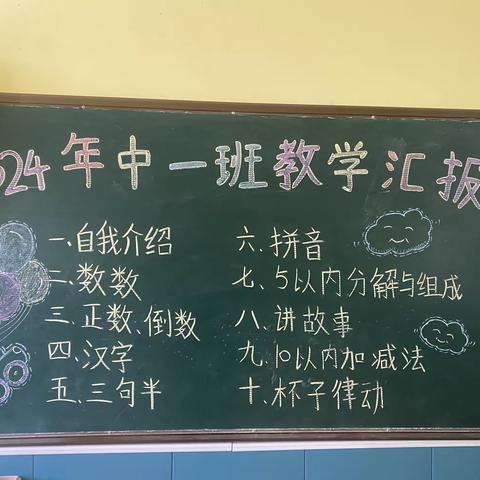 024年中一班教学汇报
一、自我介绍
二、数数
三、正数、倒数
四、汉字
五、三句半
六、拼音
七、5以内分解与组成
八、讲故事
九、10以内加减法
十、杯子律动